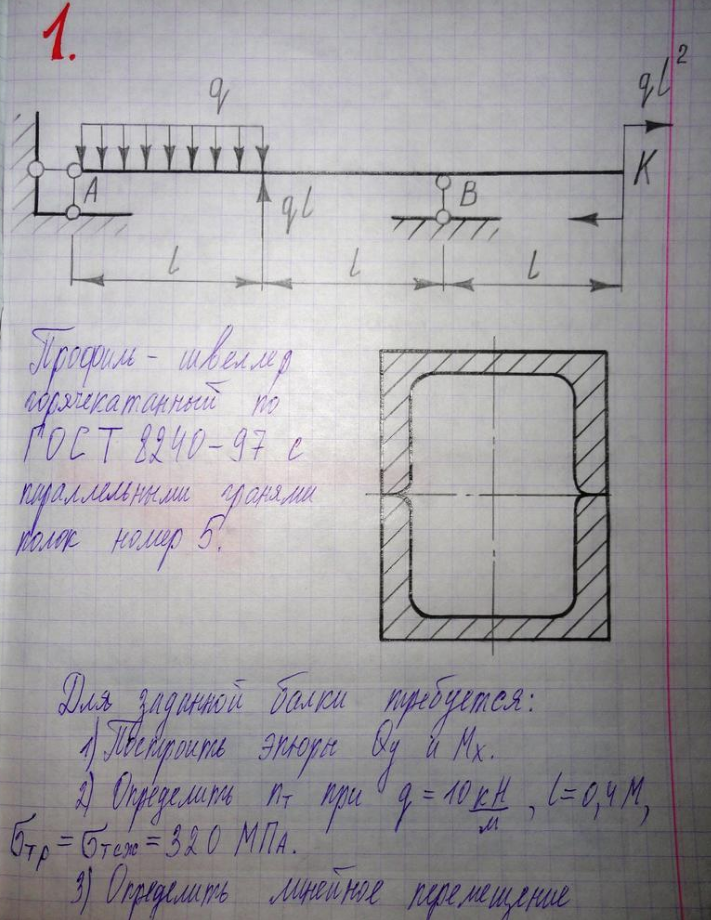 1.
q
ql²
A
ql
B
K
l
l
l
Профиль - швеллер
горячекатанный по
ГОСТ 8240-97 с
параллельными гранями
полок номер 5.
Для заданной балки требуется:
1) Построить эпюры Qy и Mx.
2) Определить nт при q = 10 кН/м, l = 0,4 м,
σтр = σтсж = 320 МПа.
3) Определить линейное перемещение